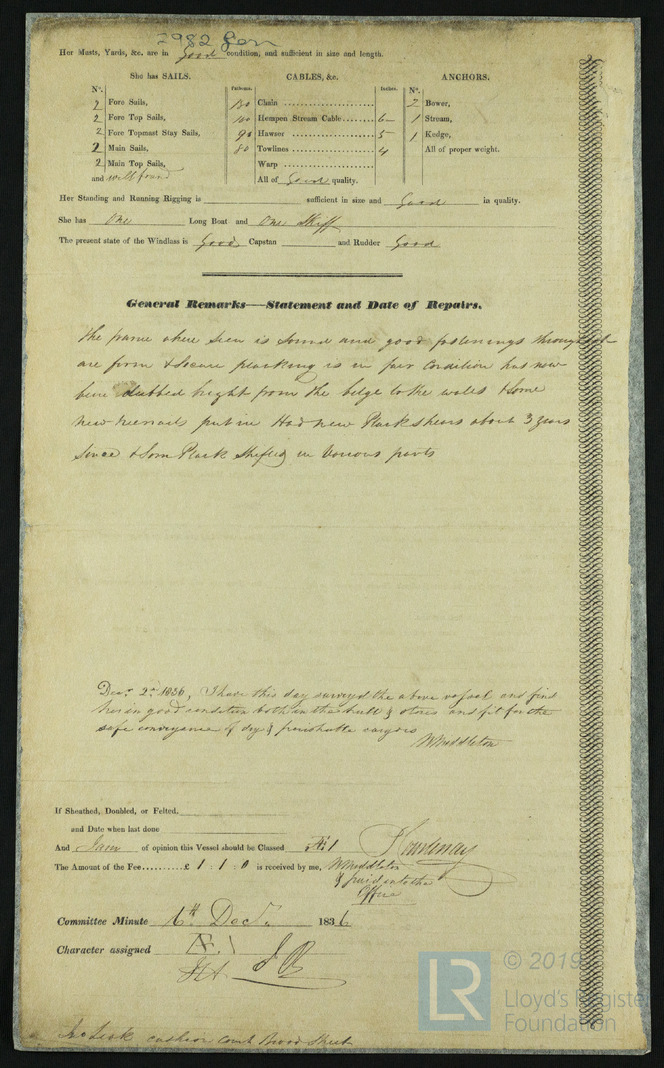 2982 Gen
Her Masts, Yards, &c. are in Good condition, and sufficient in size and length.
She has SAILS. CABLES, &c. ANCHORS.
No. Fathoms. Inches. No.
2 Fore Sails, 180 Chain 2 Bower,
2 Fore Top Sails, 100 Hempen Stream Cable 6 1 Stream,
2 Fore Topmast Stay Sails, 90 Hawser 5 1 Kedge,
2 Main Sails, 80 Towlines 4 All of proper weight.
2 Main Top Sails, Warp
and well found All of Good quality.
Her Standing and Running Rigging is sufficient in size and Good in quality.
She has One Long Boat and One Skiff
The present state of the Windlass is Good Capstan and Rudder Good
General Remarks—Statement and Date of Repairs.
The frame where seen is sound and good fastenings throughout
are firm & secure planking is in fair Condition has now
been dubbed bright from the belge to the wales & some
new treenails put in Had new Planksheers about 3 years
since & som Plank shifted in Various parts
Decr. 2nd 1836, I have this day surveyd the above vessel and find
her in good condition both in the hull & stores and fit for the
safe conveyance of dry & perishable cargoes
W Middleton
If Sheathed, Doubled, or Felted,
and Date when last done
And I am of opinion this Vessel should be Classed Æ1
The Amount of the Fee £ 1 : 1 : 0 is received by me, W Middleton
& paid into the
Office
Committee Minute 6th Decr. 1836
Character assigned Æ. 1
LR © 2019
Lloyd's Register
Foundation